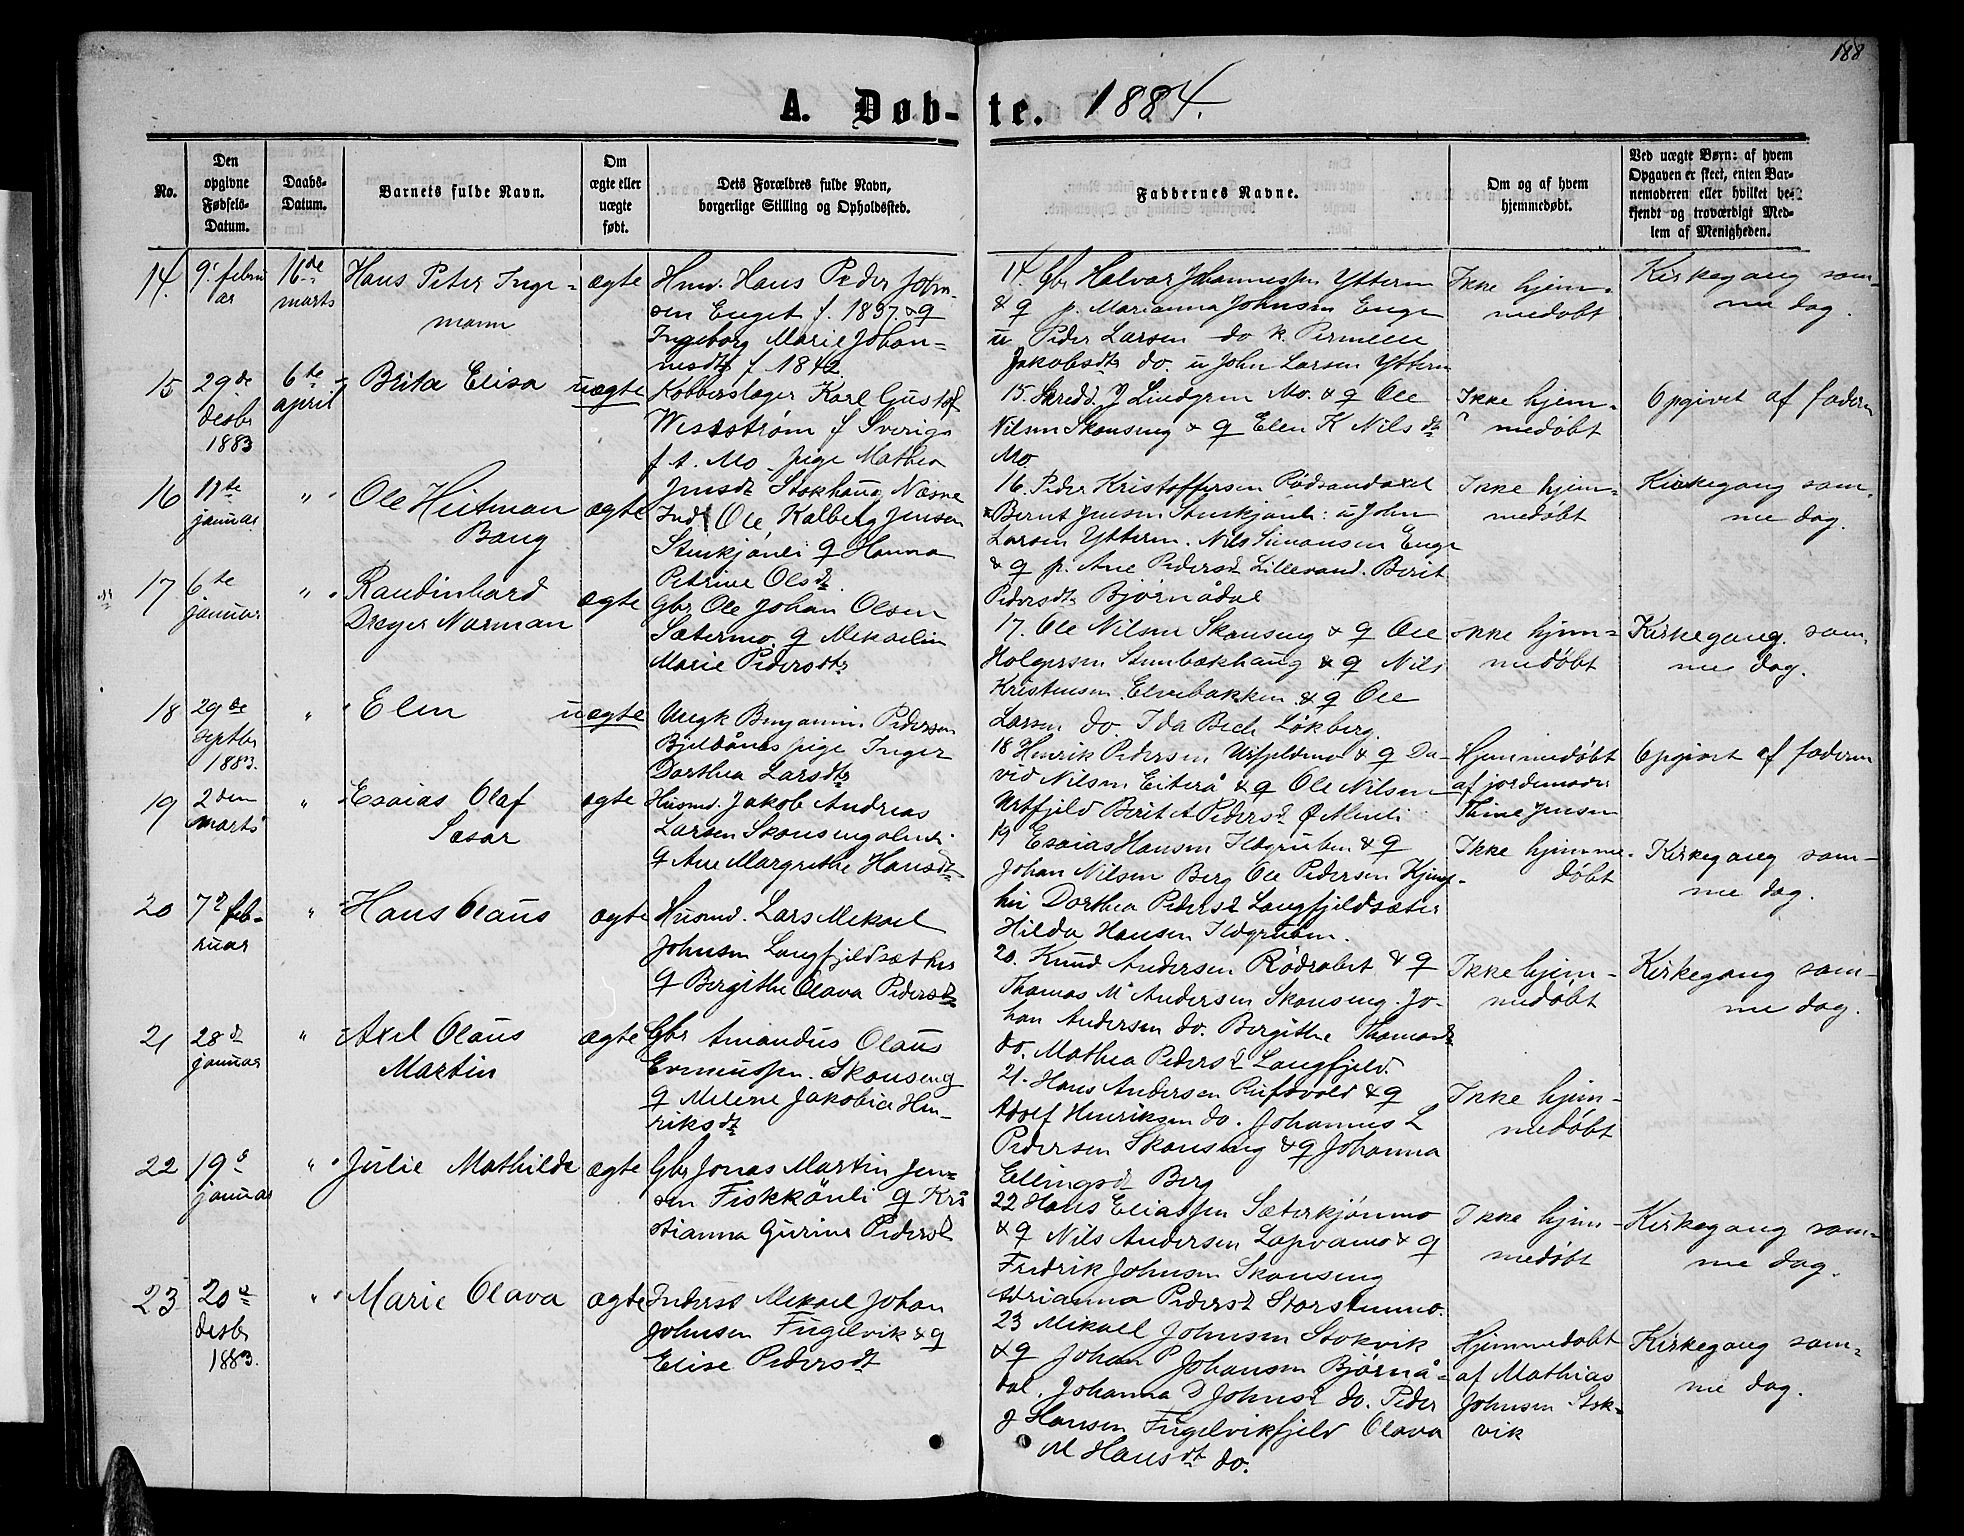 188
A. Døb-te. 1884.
No.
Den opgivne Fødsels-Datum.
Daabs-Datum.
Barnets fulde Navn.
Om ægte eller uægte født.
Dets Forældres fulde Navn, borgerlige Stilling og Opholdssted.
Faddernes Navne.
Om og af hvem hjemmedøbt.
Ved uægte Børn: af hvem Opgaven er skeet, enten Barnemoderen eller hvilket bekjendt og troværdigt Medlem af Menigheden.
14. 9. febru
ar
16de
marts
Hans Peter Inge-
mann
ægte
Hmd. Hans Peder John-
sen Enget f. 1837 & q
Ingeborg Marie Johan-
nesdtr f 1842.
14. Gbr Halvor Johannessen Yttern
& q p. Marianna Johnsen Enge
u Peder Larsen do k. Pernelle
Jakobsdtr do. u John Larsen Yttern
Ikke hjem-
medøbt
Kirkegang sam-
me dag.
15 29de
desbr
1883
6te
april
Brita Elisa
uægte
Kobberslager Karl Gustaf
Weststrøm f Sverige
f t. Mo pige Mathea
Jensdt Stokhaug Næsne
15. Skredd. J Lindgren Mo. & q Ole
Nilsen Skonseng & q Elen K Nilsdtr
Mo.
Ikke hjem-
medøbt
Opgivet af faderen
16 11te
januar
" "
Ole Hartman
Bang
ægte
Ind. Ole Kalberg Jensen
Stenkjønli q Hanna
Petrine Olsdt.
16. Peder Kristoffersen Rødsandaxel
Bernt Jensen Stenkjønli: u John
Larsen Yttern. Nils Simonsen Enge
& q p. Ane Pedersdt Lillevand. Berit
Pedersdtr Bjørnådal
Ikke hjem-
medøbt
Kirkegang sam-
me dag.
17 6te
januar
" "
Randinhard
Dreyer Norman
ægte
Gbr Ole Johan Olsen
Sætermo q Mekaeline
Marie Pedersdtr
17. Ole Nilsen Skonseng & q Ole
Holgersen Stenbækhaug & q Nils
Kristensen Elvebakken & q Ole
Larsen do. Ida Bech Løkberg.
Ikke hjem-
medøbt
Kirkegang sam-
me dag.
18 29de
septbr
1883.
"
Elen
uægte
Ungk Benjamin Pedersen
Bjeldånes pige Inger
Dorthea Larsdtr
18 Henrik Pedersen Urfjeldmo & q Da-
vid Nilsen Eiterå & q Ole Nilsen
Urtfjeld Berit A Pedersdt Ø Menli
Hjemmedøbt
af jordemoder
Thine Jensen
Opgivet af faderen
19 2den
marts
"
Esaias Olaf
Sæsar
ægte
Husmd. Jakob Andreas
Larsen Skonsengalmli
q Ane Margrethe Hansdtr
19 Esaias Hansen Ildgruben & q
Johan Nilsen Berg Ole Pedersen Kjeng-
lii Dorthea Pedersdt Langfjeldsæter
Hilda Hansen Ildgruben.
Ikke hjemme-
døbt
Kirkegang sam-
me dag.
20 7de feb-
ruar
"
Hans Olaus
ægte
Husmd. Lars Mekael
Johnsen Langfjeldsæther
q Bergithe Olava Pedersdt
20. Knud Andersen Rødrabet & q
Thomas M Andersen Skonseng. Jo-
han Andersen do. Bergithe Thomasdt
do. Mathea Pedersdt Langfjeld.
Ikke hjem-
medøbt
Kirkegang sam-
me dag.
21 28d
januar
"
Axel Olaus
Martin
ægte
Gbr Amandus Olaus
Evenussen. Skonseng
q Melene Jakobia Hen-
riksdt
21. Hans Andersen Rufsvold & q
Adolf Henriksen do. Johannes L
Pedersen Skonseng & q Johanna
Ellingsdt Berg
Ikke hjem-
medøbt
22 19d
januar
" "
Julie Mathilde
ægte
Gbr Jonas Martin Jen-
sen Fiskkönli q Kri
stianna Gurine Pedersdt
22 Hans Eliassen Sæterkjønmo
& q Nils Andersen Lapvamo & q
Fredrik Johnsen Skonseng
Adrianna Pedersdt Storstenmo.
Ikke hjem-
medøbt
Kirkegang sam-
me dag.
23 20d
desbr
1883.
" "
Marie Olava
ægte
Inderst Mekael Johan
Johnsen Fugelvik & q
Elise Pedersdt
23 Mikael Johnsen Stokvik
& q Johan P Johansen Bjørnå-
dal. Johanna D Johnsdt do. Peder
J Hansen Fugelvikfjeld Olava
M Hansdt do.
Hjemmedøbt
af Mathias
Johnsen Stok-
vik
Kirkegang sam-
me dag.